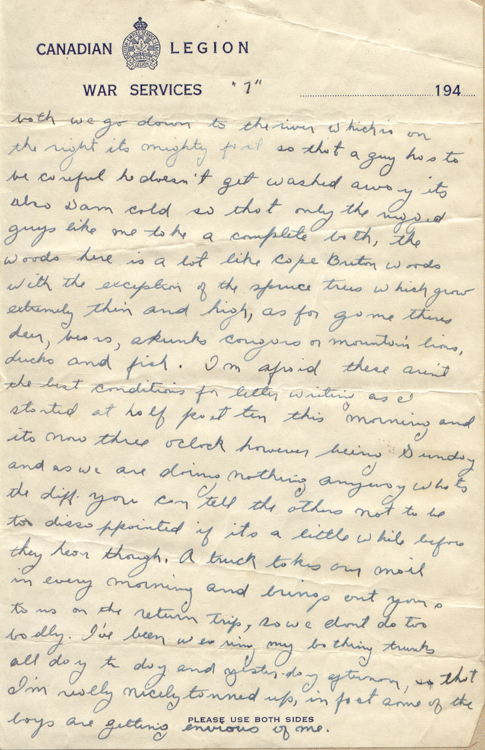 CANADIAN LEGION
WAR SERVICES "7" 194
both we go down to the river which is on
the right its mighty fast so that a guy has to
be careful he doesn't get washed away its
also Dam cold so that only the rugged
guys like me take a complete bath, the
woods here is a lot like Cape Breton woods
with the exception of the spruce trees which grow
extremely thin and high, as for game theres
deer, bears, skunks cougars or mountain lions,
ducks and fish. I'm afraid these arent
the best conditions for letter writing as I
started at half past ten this morning and
its now three oclock however being Sunday
and as we are doing nothing anyway whats
the diff. you can tell the others not to be
too dissappointed if its a little while before
they hear though. A truck takes our mail
in every morning and brings out yours
to us on the return trip, so we dont do too
badly. I've been wearing my bathing trunks
all day to day and yesterday afternoon, so that
I'm really nicely tanned up, in fact some of the
boys are getting envious of me.
PLEASE USE BOTH SIDES